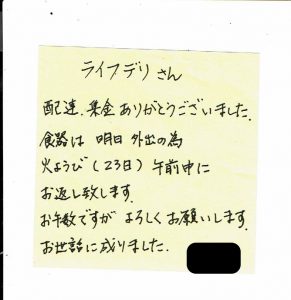 ライフデリさん
配達、集金ありがとうございました。
食器は 明日 外出の為
火ようび(23日)午前中に
お返し致します。
お手数ですが よろしくお願いします。
お世話に成りました。